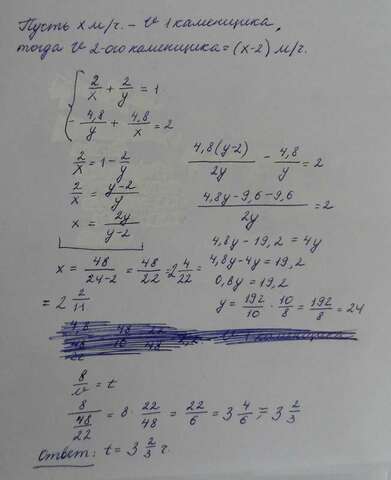 Пусть x м/г. – v 1 каменщика,
тогда v 2-ого каменщика = (x-2) м/г.
2/x + 2/y = 1
- 4,8/y + 4,8/x = 2
2/x = 1 - 2/y
2/x = y-2/y
x = 2y/y-2
4,8(y-2)/2y - 4,8/y = 2
4,8y-9,6-9,6/2y = 2
4,8y - 19,2 = 4y
4,8y-4y = 19,2
0,8y = 19,2
y = 192/10 · 10/8 = 192/8 = 24
x = 48/24-2 = 48/22 = 2 4/22 =
= 2 2/11
8/v = t
8/48/22 = 8 · 22/48 = 22/6 = 3 4/6 = 3 2/3
Ответ: t = 3 2/3 г.